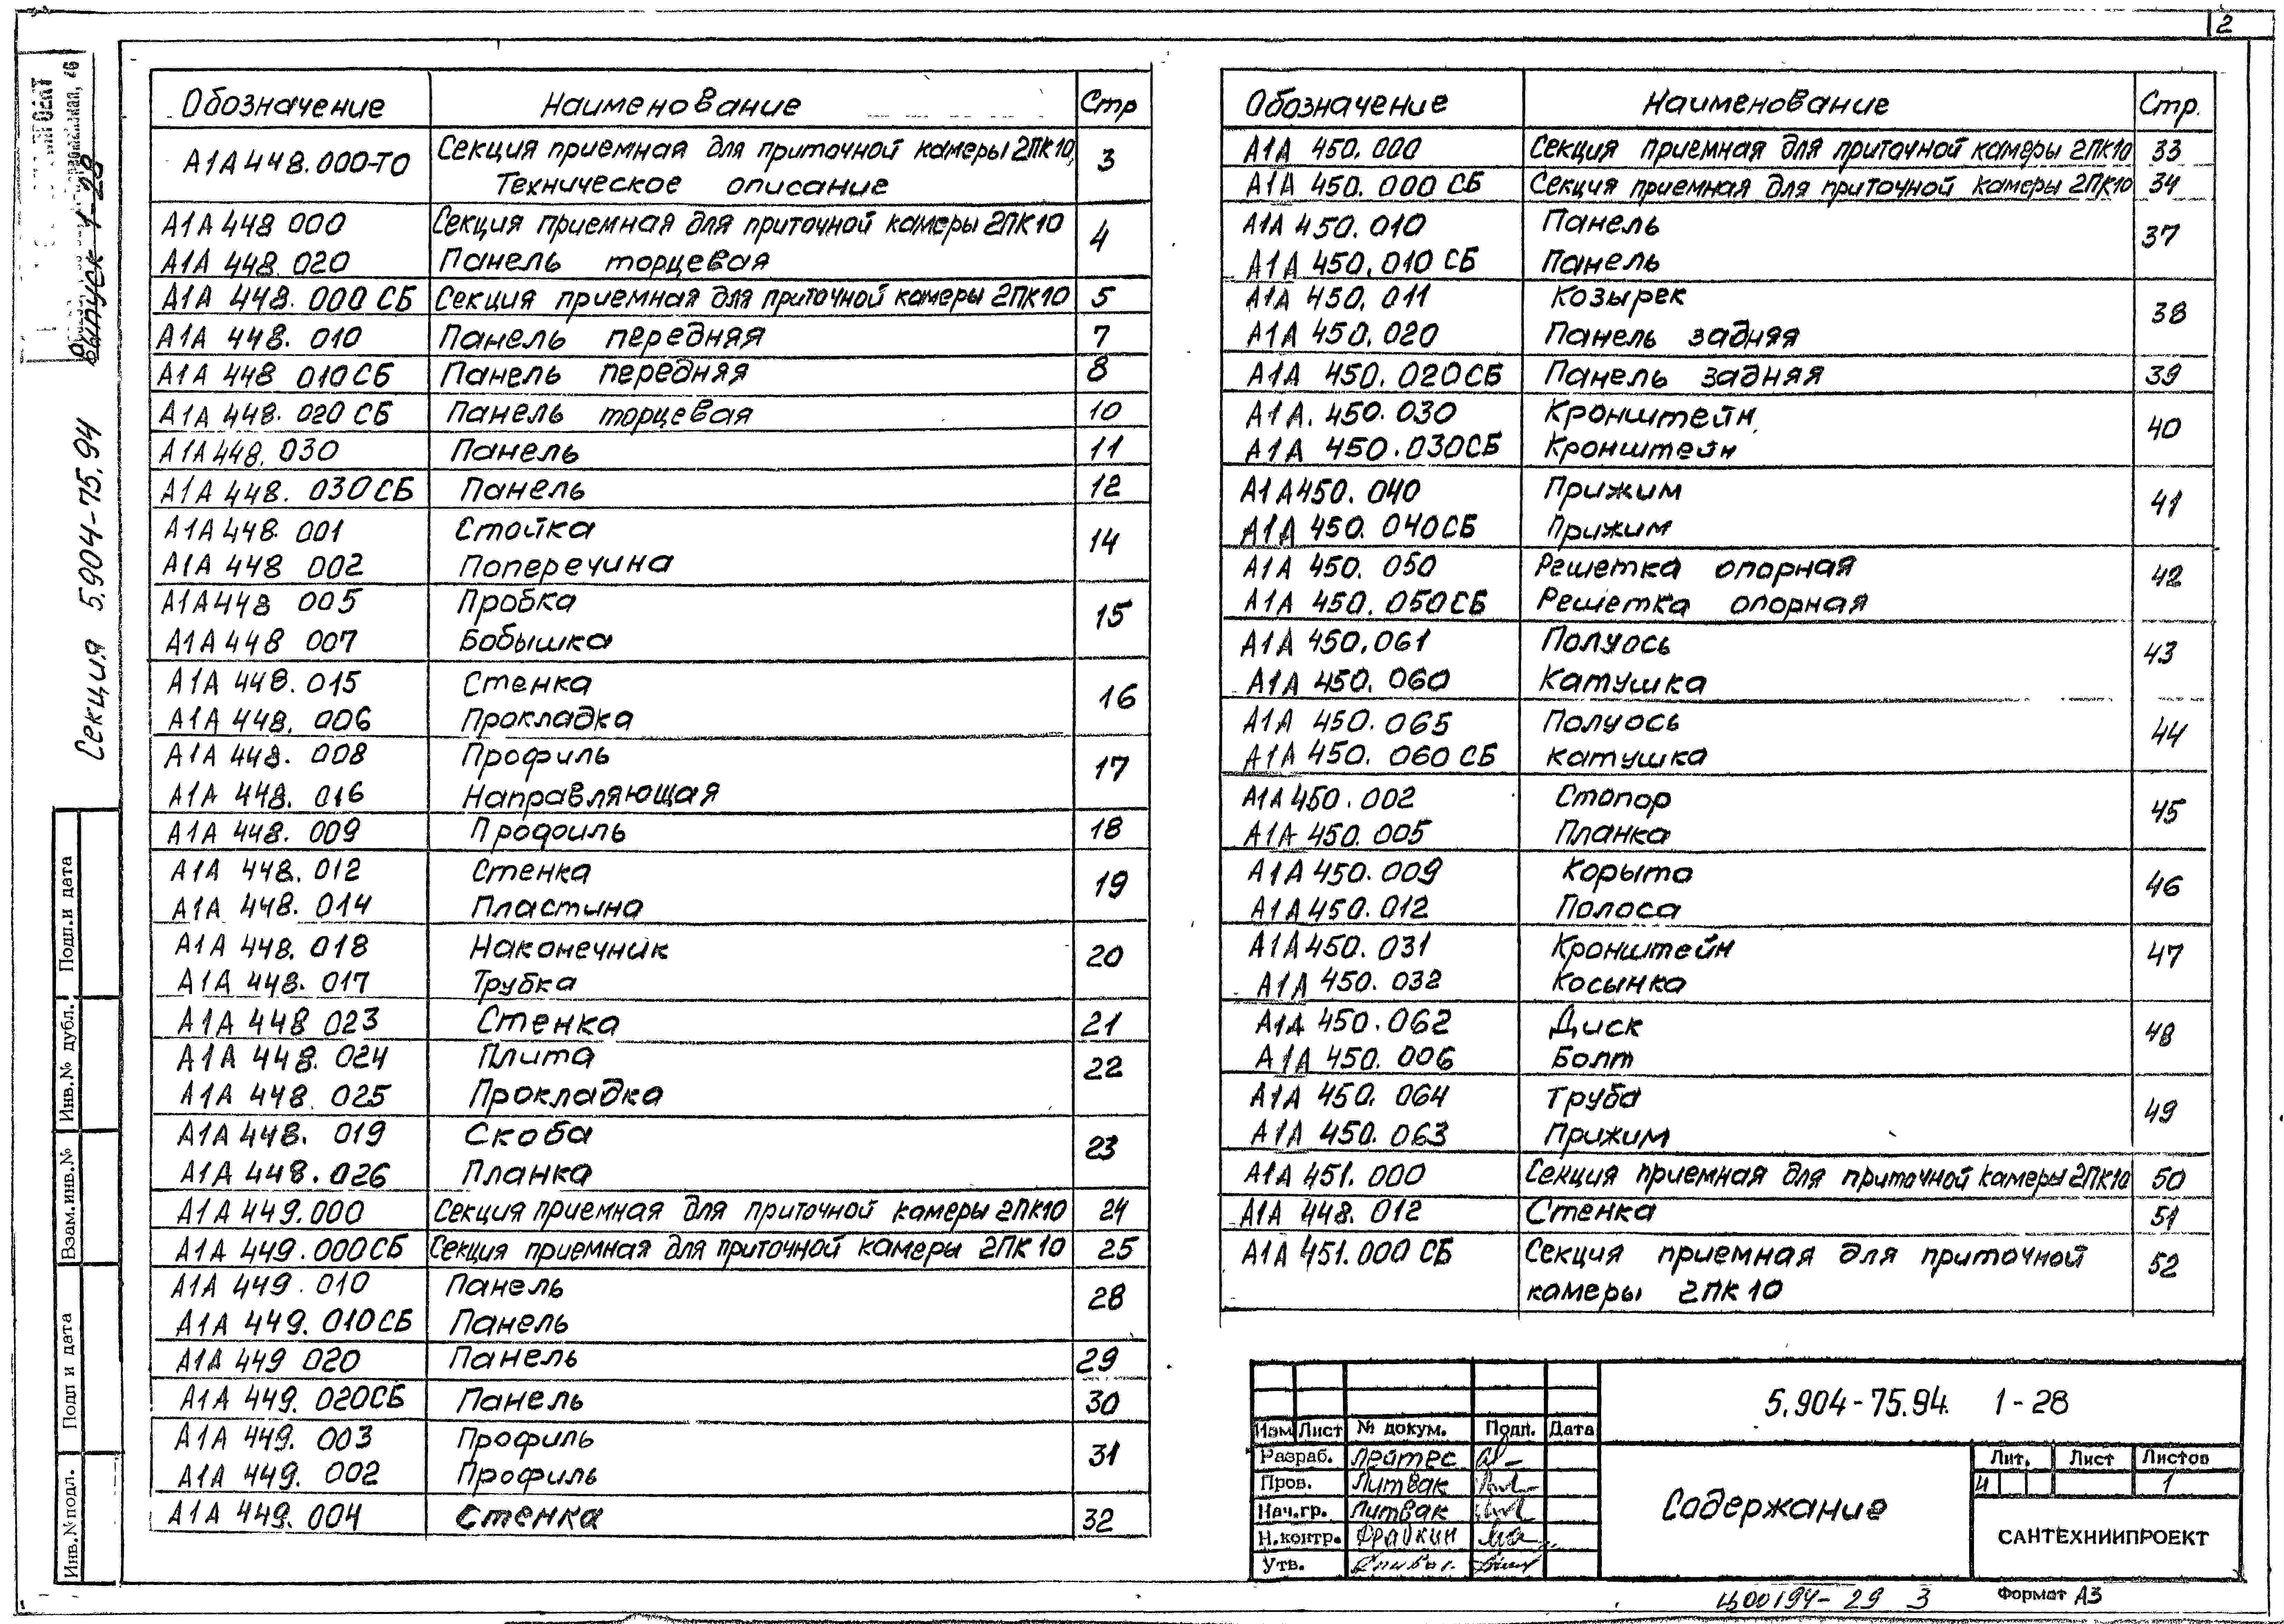 2
Обозначение Наименование Стр
А1А448.000-ТО Секция приемная для приточной камеры 2ПК10, 3
Техническое описание
А1А448 000 Секция приемная для приточной камеры 2ПК10 4
А1А 448.020 Панель торцевая
А1А 448.000 СБ Секция приемная для приточной камеры 2ПК10 5
А1А 448.010 Панель передняя 7
А1А 448 010СБ Панель передняя 8
А1А 448.020 СБ Панель торцевая 10
А1А448.030 Панель 11
А1А 448.030СБ Панель 12
А1А448.001 Стойка 14
А1А 448 002 Поперечина
А1А448 005 Пробка 15
А1А448 007 Бобышка
А1А 448.015 Стенка 16
А1А 448.006 Прокладка
А1А 448.008 Профиль 17
А1А 448.016 Направляющая
А1А 448.009 Профиль 18
А1А 448.012 Стенка 19
А1А 448.014 Пластина
А1А 448.018 Наконечник 20
А1А 448.017 Трубка
А1А 448 023 Стенка 21
А1А 448.024 Плита 22
А1А 448.025 Прокладка
А1А 448.019 Скоба 23
А1А 448.026 Планка
А1А 449.000 Секция приемная для приточной камеры 2ПК10 24
А1А 449.000СБ Секция приемная для приточной камеры 2ПК10 25
А1А 449.010 Панель 28
А1А 449.010СБ Панель
А1А 449 020 Панель 29
А1А 449.020СБ Панель 30
А1А 449.003 Профиль 31
А1А 449.002 Профиль
А1А 449.004 Стенка 32
Обозначение Наименование Стр.
А1А 450.000 Секция приемная для приточной камеры 2ПК10 33
А1А 450.000 СБ Секция приемная для приточной камеры 2ПК10 34
А1А 450.010 Панель 37
А1А 450.010 СБ Панель
А1А 450.011 Козырек 38
А1А 450.020 Панель задняя
А1А 450.020СБ Панель задняя 39
А1А.450.030 Кронштейн 40
А1А 450.030СБ Кронштейн
А1А450.040 Прижим 41
А1А 450.040СБ Прижим
А1А 450.050 Решетка опорная 42
А1А 450.050СБ Решетка опорная
А1А 450.061 Полуось 43
А1А 450.060 Катушка
А1А 450.065 Полуось 44
А1А 450.060 СБ Катушка
А1А450.002 Стопор 45
А1А 450.005 Планка
А1А450.009 Корыто 46
А1А450.012 Полоса
А1А450.031 Кронштейн 47
А1А 450.032 Косынка
А1А 450.062 Диск 48
А1А 450.006 Болт
А1А 450.064 Труба 49
А1А 450.063 Прижим
А1А 451.000 Секция приемная для приточной камеры 2ПК10 50
А1А 448.012 Стенка 51
А1А 451.000 СБ Секция приемная для приточной 52
камеры 2ПК10
Секция 5.904-75.94 выпуск 1-28
Подп.и дата
Инв.№ дубл.
Взам.инв.№
Подп и дата
Инв.№подл.
5.904-75.94. 1-28
Изм Лист № докум. Подп. Дата
Разраб. Лейтес
Пров. Литвак
Нач.гр. Литвак
Н.контр. Фрайкин
Утв.
Содержание
Лит. Лист Листов
И 1
САНТЕХНИИПРОЕКТ
Ц00194-29 3 Формат А3